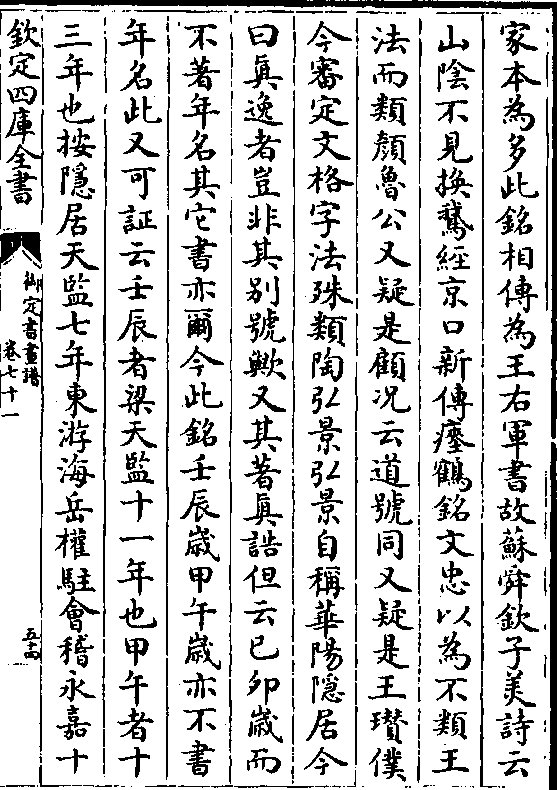 家本為多此銘相傳為王右軍書故蘇舜欽子美詩云
山陰不見換鵞經京口新傳瘞鶴銘文忠以為不類王
法而類顔魯公又疑是顧況云道號同又疑是王瓚僕
今審定文格字法殊類陶弘景弘景自稱華陽隱居今
曰真逸者豈非其别號歟又其著真誥但云已夘嵗而
不著年名其它書亦爾今此銘壬辰嵗甲午嵗亦不書
年名此又可証云壬辰者梁天監十一年也甲午者十
三年也按隱居天監七年東游海岳權駐會稽永嘉十
欽定四庫全書
御定書畫譜
卷七十一
五十四